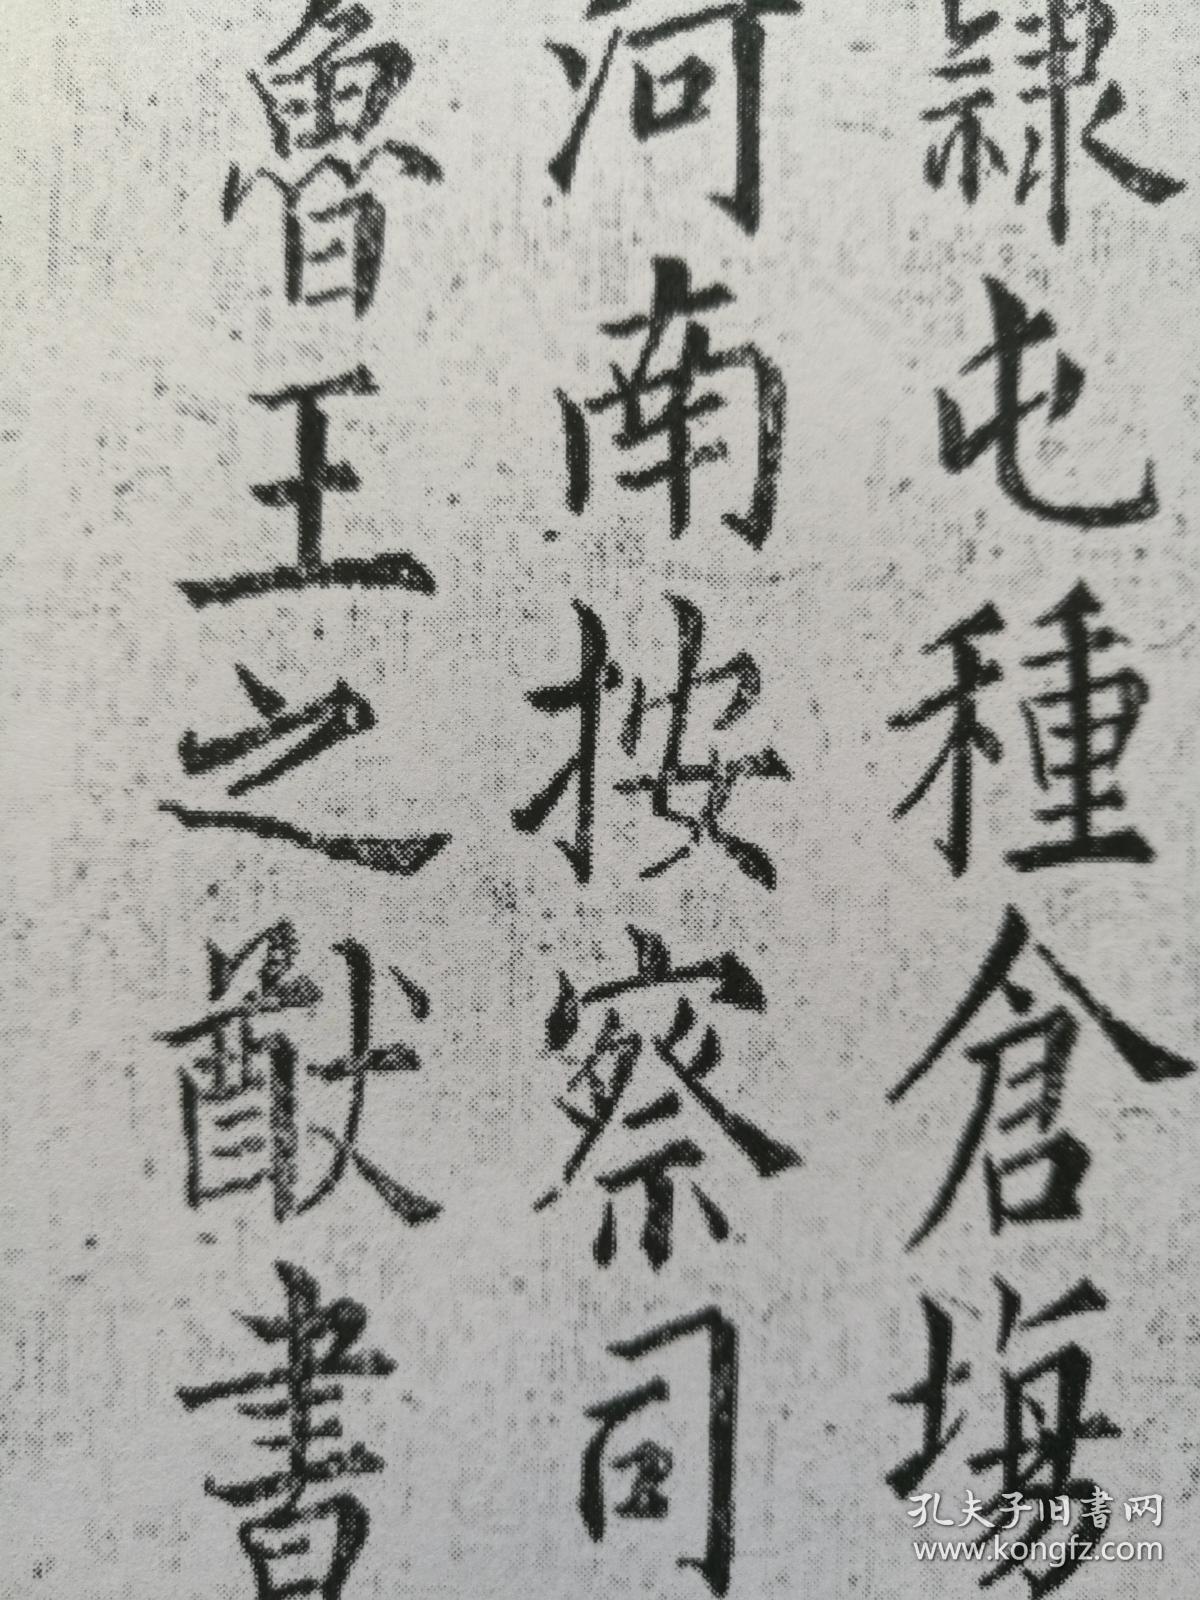 隸屯種倉塲
河南按察司
魯王之猷書
孔夫子旧書网
www.kongfz.com